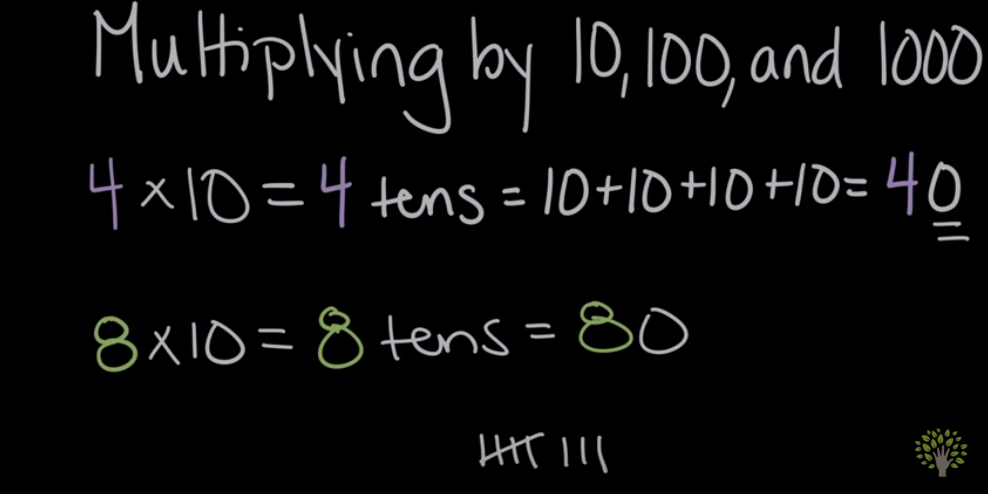 Multiplying by 10, 100, and 1000
4 × 10 = 4 tens = 10 + 10 + 10 + 10 = 40
8 × 10 = 8 tens = 80